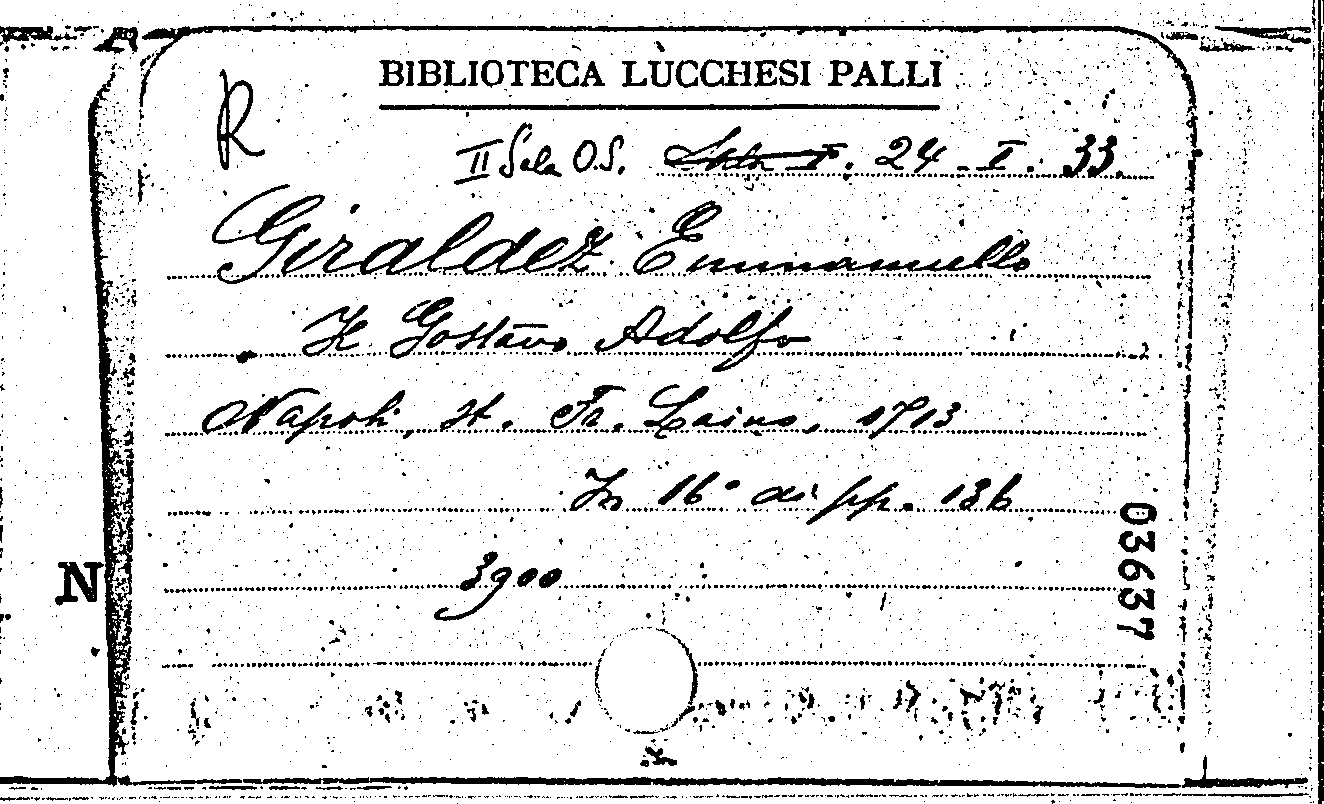 BIBLIOTECA LÙCCHESI PALLI
R
II Sala O.S. Sala I. 24 - I. 33.
Giraldez Emmanuello
Il Gostavo Adolfo
Napoli, st. Fr. Laino, 1713
In 16° di pp. 136
3900
N
03637